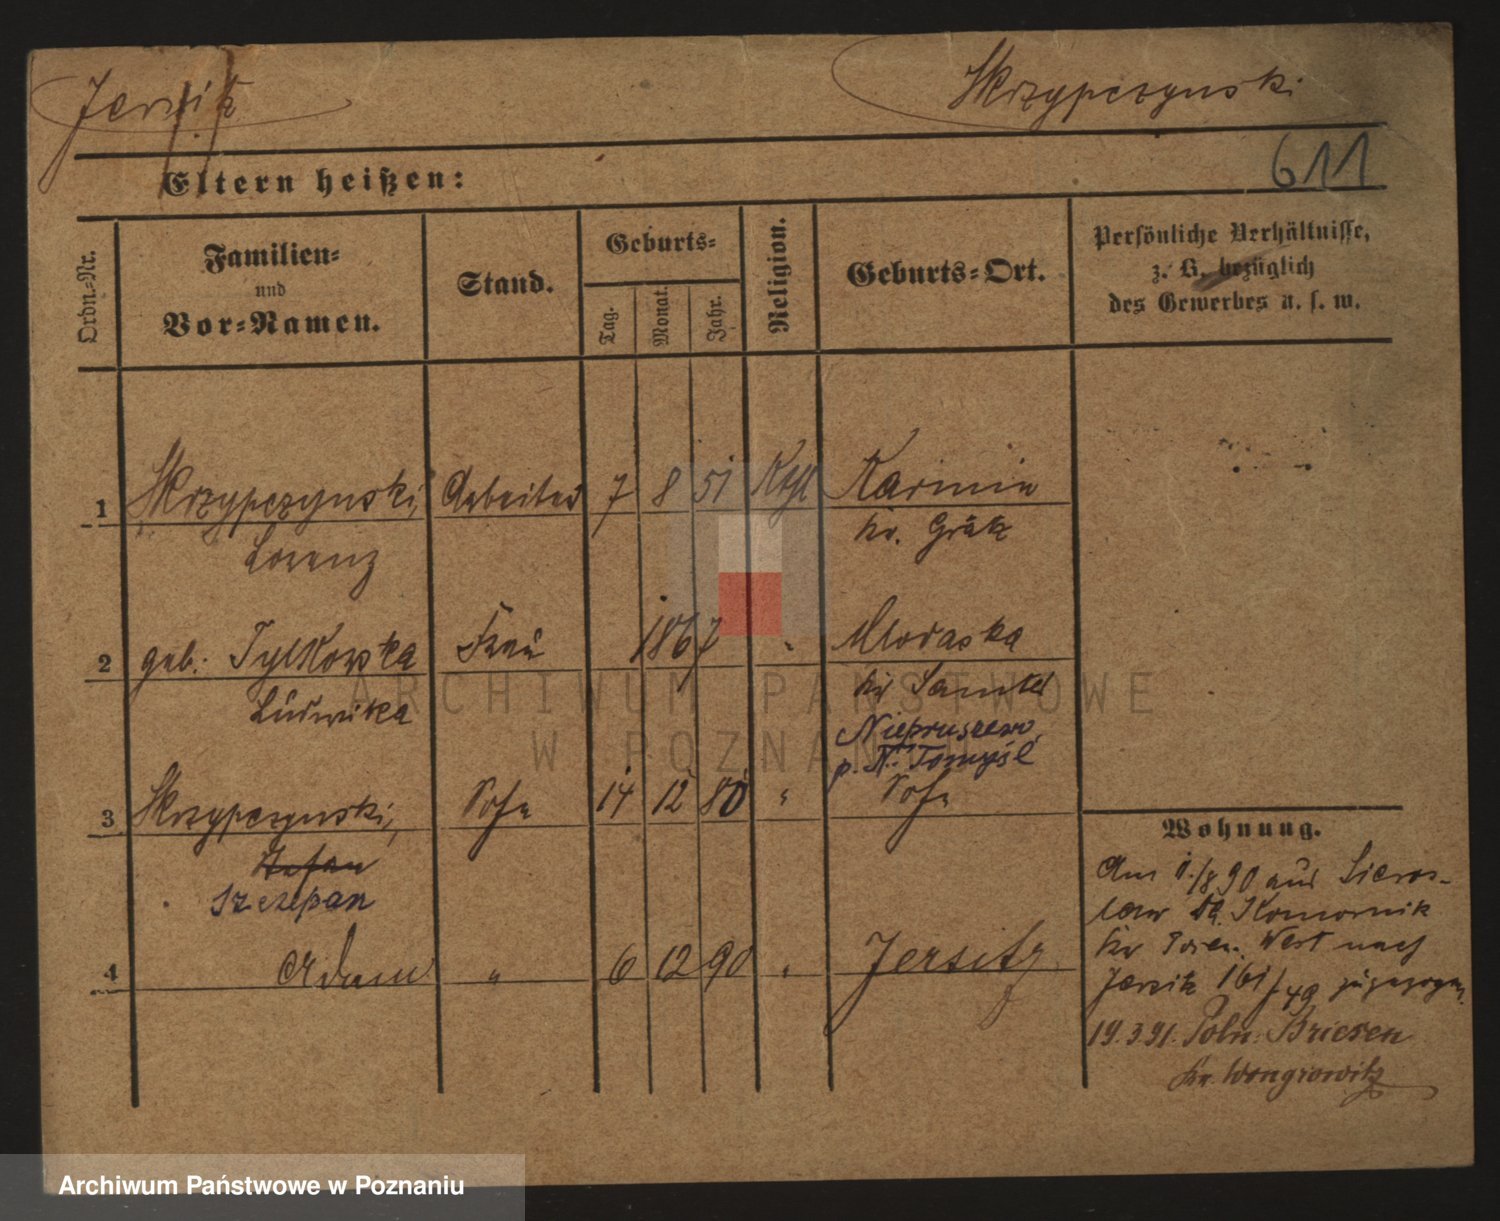 Jerzik Skrzypczynski
611
Eltern heißen:
Ordn.-Nr.
Familien-
und
Vor-Namen.
Stand.
Geburts-
Tag.
Monat.
Jahr.
Religion.
Geburts-Ort.
Persönliche Verhältnisse,
z. B. bezüglich
des Gewerbes u. s. w.
1 Skrzypczynski, Arbeiter 7 8 51 Kath Karmin
Lorenz Kr. Grätz
2 geb. Tylkowska Frau 1867 " Mlodasko
Ludwika Kr Samter
Niepruszewo
p. N. Tomyśl
3 Skrzypczynski, Sohn 14 12 80 "
Stefan
Szczepan
4 Adam " 6 12 90 " Jersitz
Wohnung.
Am 1./8 90 aus Sieros-
law Kr. Komornik
Kr Posen. West nach
Jerzik 161/49 zugezogen.
19.3.91. Poln. Briesen
Kr. Wongrowitz
ARCHIWUM PAŃSTWOWE
W POZNANIU
Archiwum Państwowe w Poznaniu